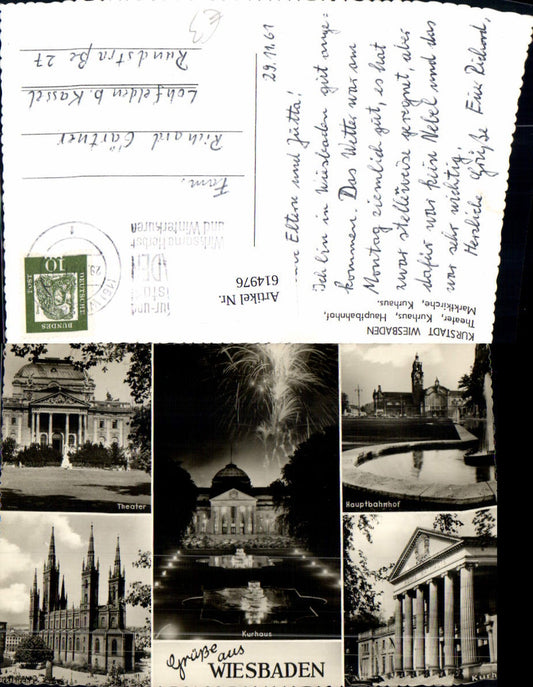 29.11.61
Eltern und Jutta!
Ich bin in Wiesbaden gut ange-
kommen. Das Wetter war am
Montag ziemlich gut, es hat
zwar stellenweise geregnet, aber
dafür war kein Nebel und das
war sehr wichtig.
Herzliche Grüße Euer Richard.
Fam.
Richard Gärtner
Lohfelden b. Kassel
Rundstraße 27
und Winterkuren
DEUTSCHE
BUNDES
POST
10
Artikel Nr.
614976
KURSTADT WIESBADEN
Theater, Kurhaus, Hauptbahnhof,
Marktkirche, Kurhaus.
Theater
Hauptbahnhof
Kurhaus
Kurh
Grüße aus
WIESBADEN